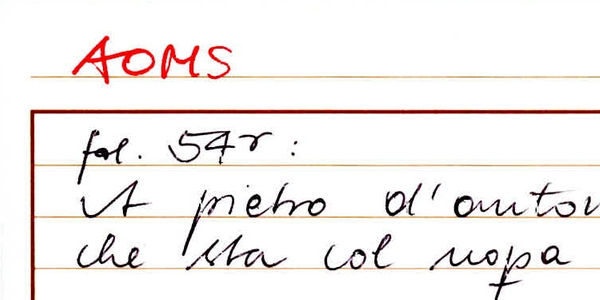 AOMS
fol. 54r :
A pietro d'anton
che sta col nopa